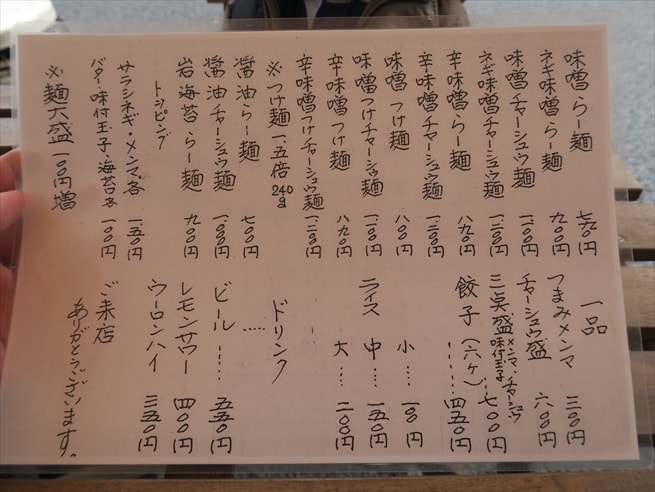 味噌らー麺 七九〇円
ネギ味噌らー麺 九〇〇円
味噌チャーシュウ麺 一.一〇〇円
ネギ味噌チャーシュウ麺 一.二〇〇円
辛味噌らー麺 八九〇円
辛味噌チャーシュウ麺 一.二〇〇円
味噌つけ麺 八〇〇円
味噌つけチャーシュウ麺 一.一〇〇円
辛味噌つけ麺 八九〇円
辛味噌つけチャーシュウ麺 一.二〇〇円
※つけ麺一.五倍240g
醤油らー麺 七〇〇円
醤油チャーシュウ麺 一.〇〇〇円
岩海苔らー麺 九〇〇円
トッピング
サラシネギ・メンマ各 一五〇円
バター・味付玉子・海苔各 一〇〇円
※麺大盛一〇〇円増
一品
つまみメンマ 三〇〇円
チャーシュウ盛 六〇〇円
三点盛メンマ・チャーシュウ味付玉子…七〇〇円
餃子(六ヶ)……四五〇円
ライス
小…. 一〇〇円
中…. 一五〇円
大…. 二〇〇円
ドリンク
ビール…… 五五〇円
レモンサワー 四〇〇円
ウーロンハイ 三五〇円
ご来店
ありがとうございます。